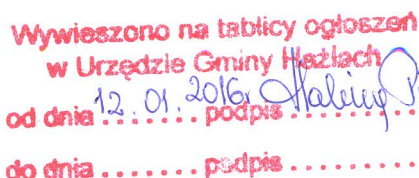 Wywieszono na tablicy ogłoszeń
w Urzędzie Gminy Hażlach
od dnia 12.01.2016r podpis Halina
do dnia ........ podpis ........